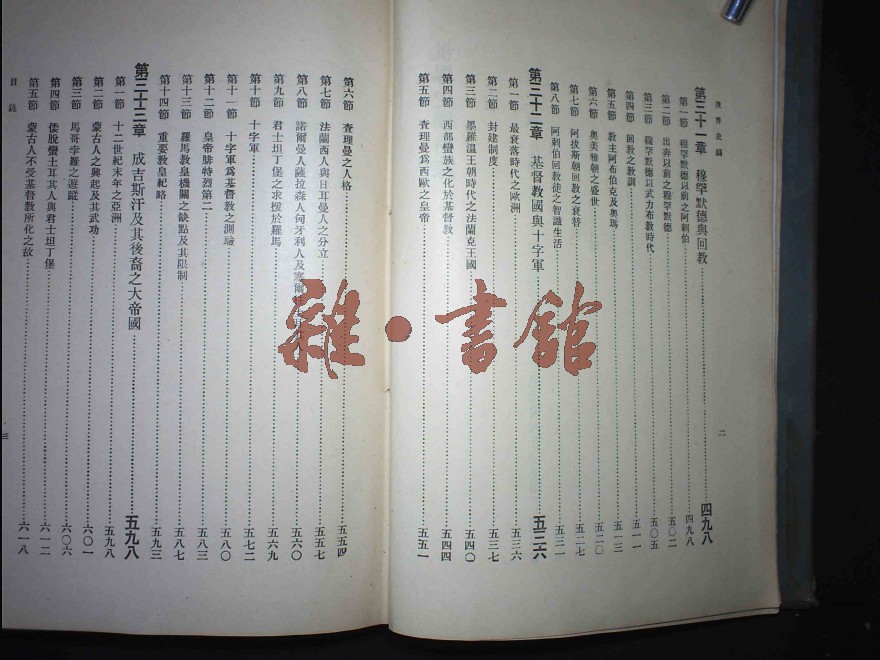 世界史綱
第三十一章 穆罕默德與回教 四九八
第一節 穆罕默德以前之阿剌伯 四九八
第二節 出奔以前之穆罕默德 五〇二
第三節 穆罕默德以武力布教時代 五〇五
第四節 回教之教訓 五一一
第五節 教主阿布伯克及奧瑪 五一三
第六節 奧美雅朝之盛世 五二〇
第七節 阿拔斯朝回教之衰替 五二七
第八節 阿剌伯回教徒之智識生活 五三一
第三十二章 基督教國與十字軍 五三六
第一節 最衰落時代之歐洲 五三六
第二節 封建制度 五三七
第三節 墨羅溫王朝時代之法蘭克王國 五四〇
第四節 西部蠻族之化於基督教 五四四
第五節 查理曼爲西歐之皇帝 五五一
二
第六節 查理曼之人格 五五四
第七節 法蘭西人與日耳曼人之分立 五五七
第八節 諾爾曼人薩拉森人匈牙利人及塞爾 五六〇
第九節 君士坦丁堡之求援於羅馬 五六九
第十節 十字軍 五七二
第十一節 十字軍爲基督教之測驗 五八〇
第十二節 皇帝腓特烈第二 五八三
第十三節 羅馬教皇機關之缺點及其限制 五八七
第十四節 重要教皇紀略 五九三
第三十三章 成吉斯汗及其後裔之大帝國 五九八
第一節 十二世紀末年之亞洲 五九八
第二節 蒙古人之興起及其武功 六〇一
第三節 馬哥孛羅之遊蹤 六〇六
第四節 倭脫蠻土耳其人與君士坦丁堡 六一二
第五節 蒙古人不受基督教所化之故 六一八
目錄
三
雜·書館